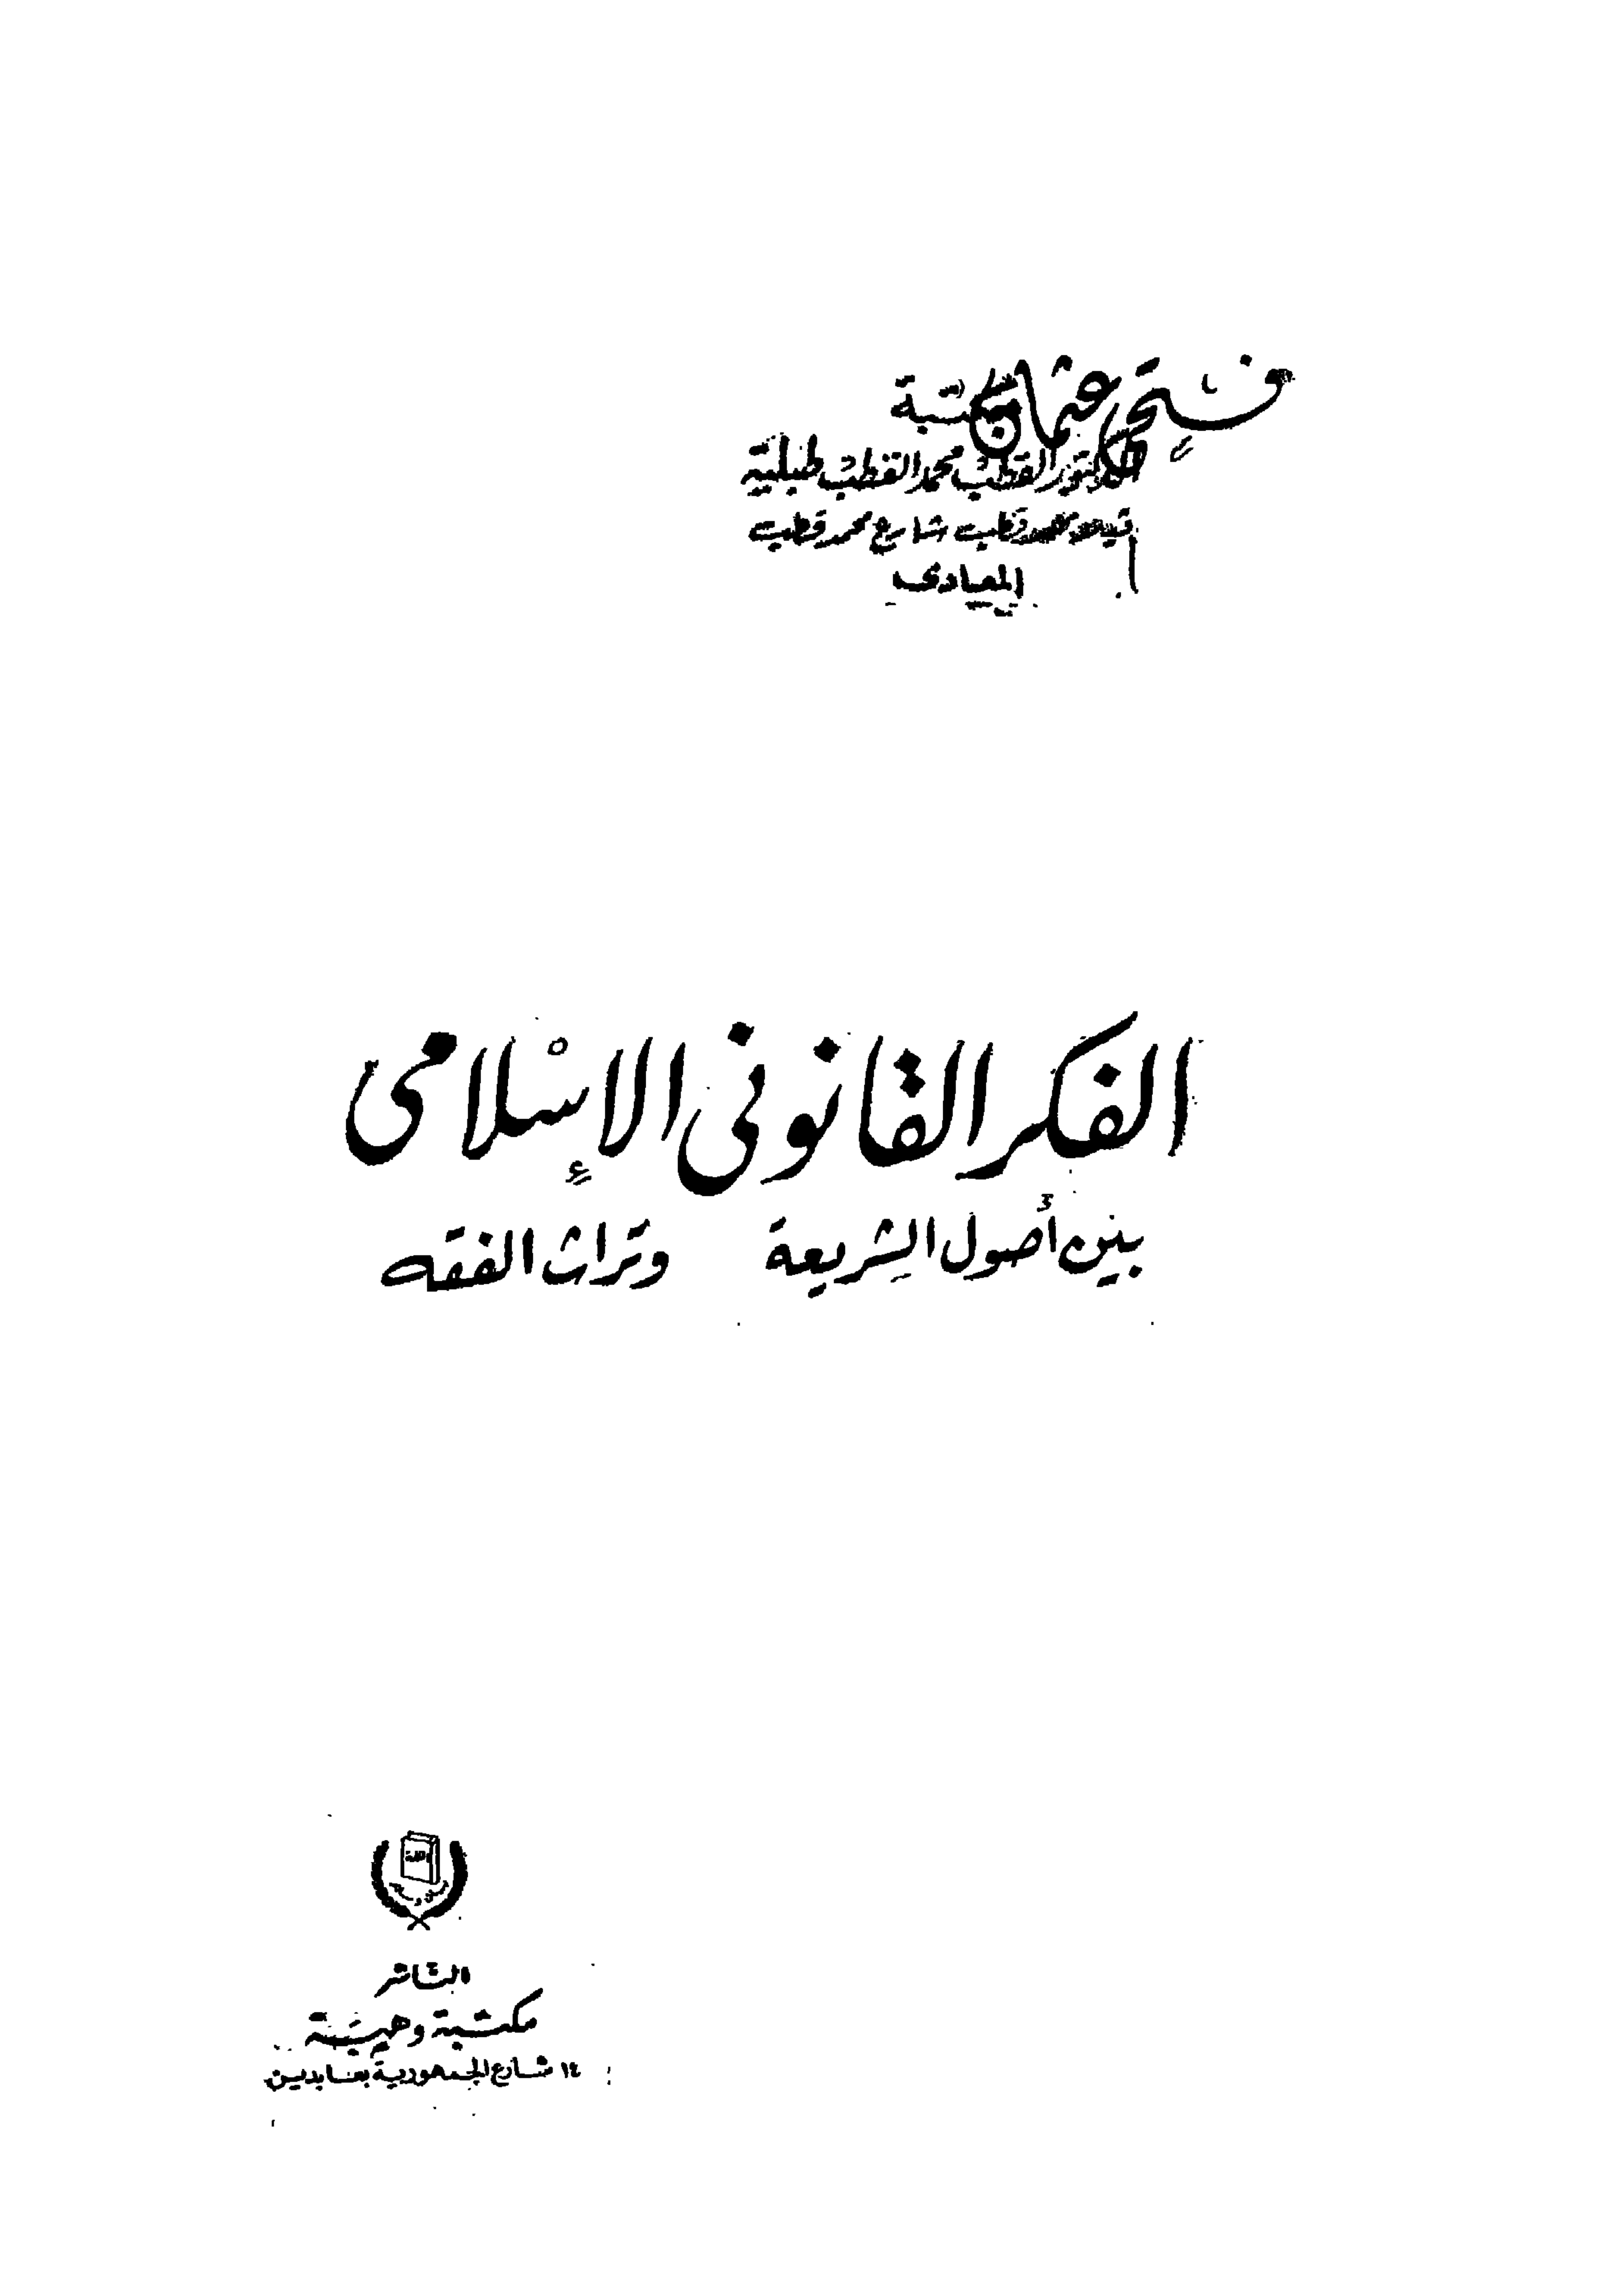 فتحى عثمان
مكتبة
الدكتور القطب محمد القطب طبلية
قطب شارع محمد قطب
المعادى
الفكر القانونى الإسلامى
بين أصول الشريعة وتراث الفقه
الناشر
مكتبة وهبة
١٤ شارع الجمهورية بعابدين